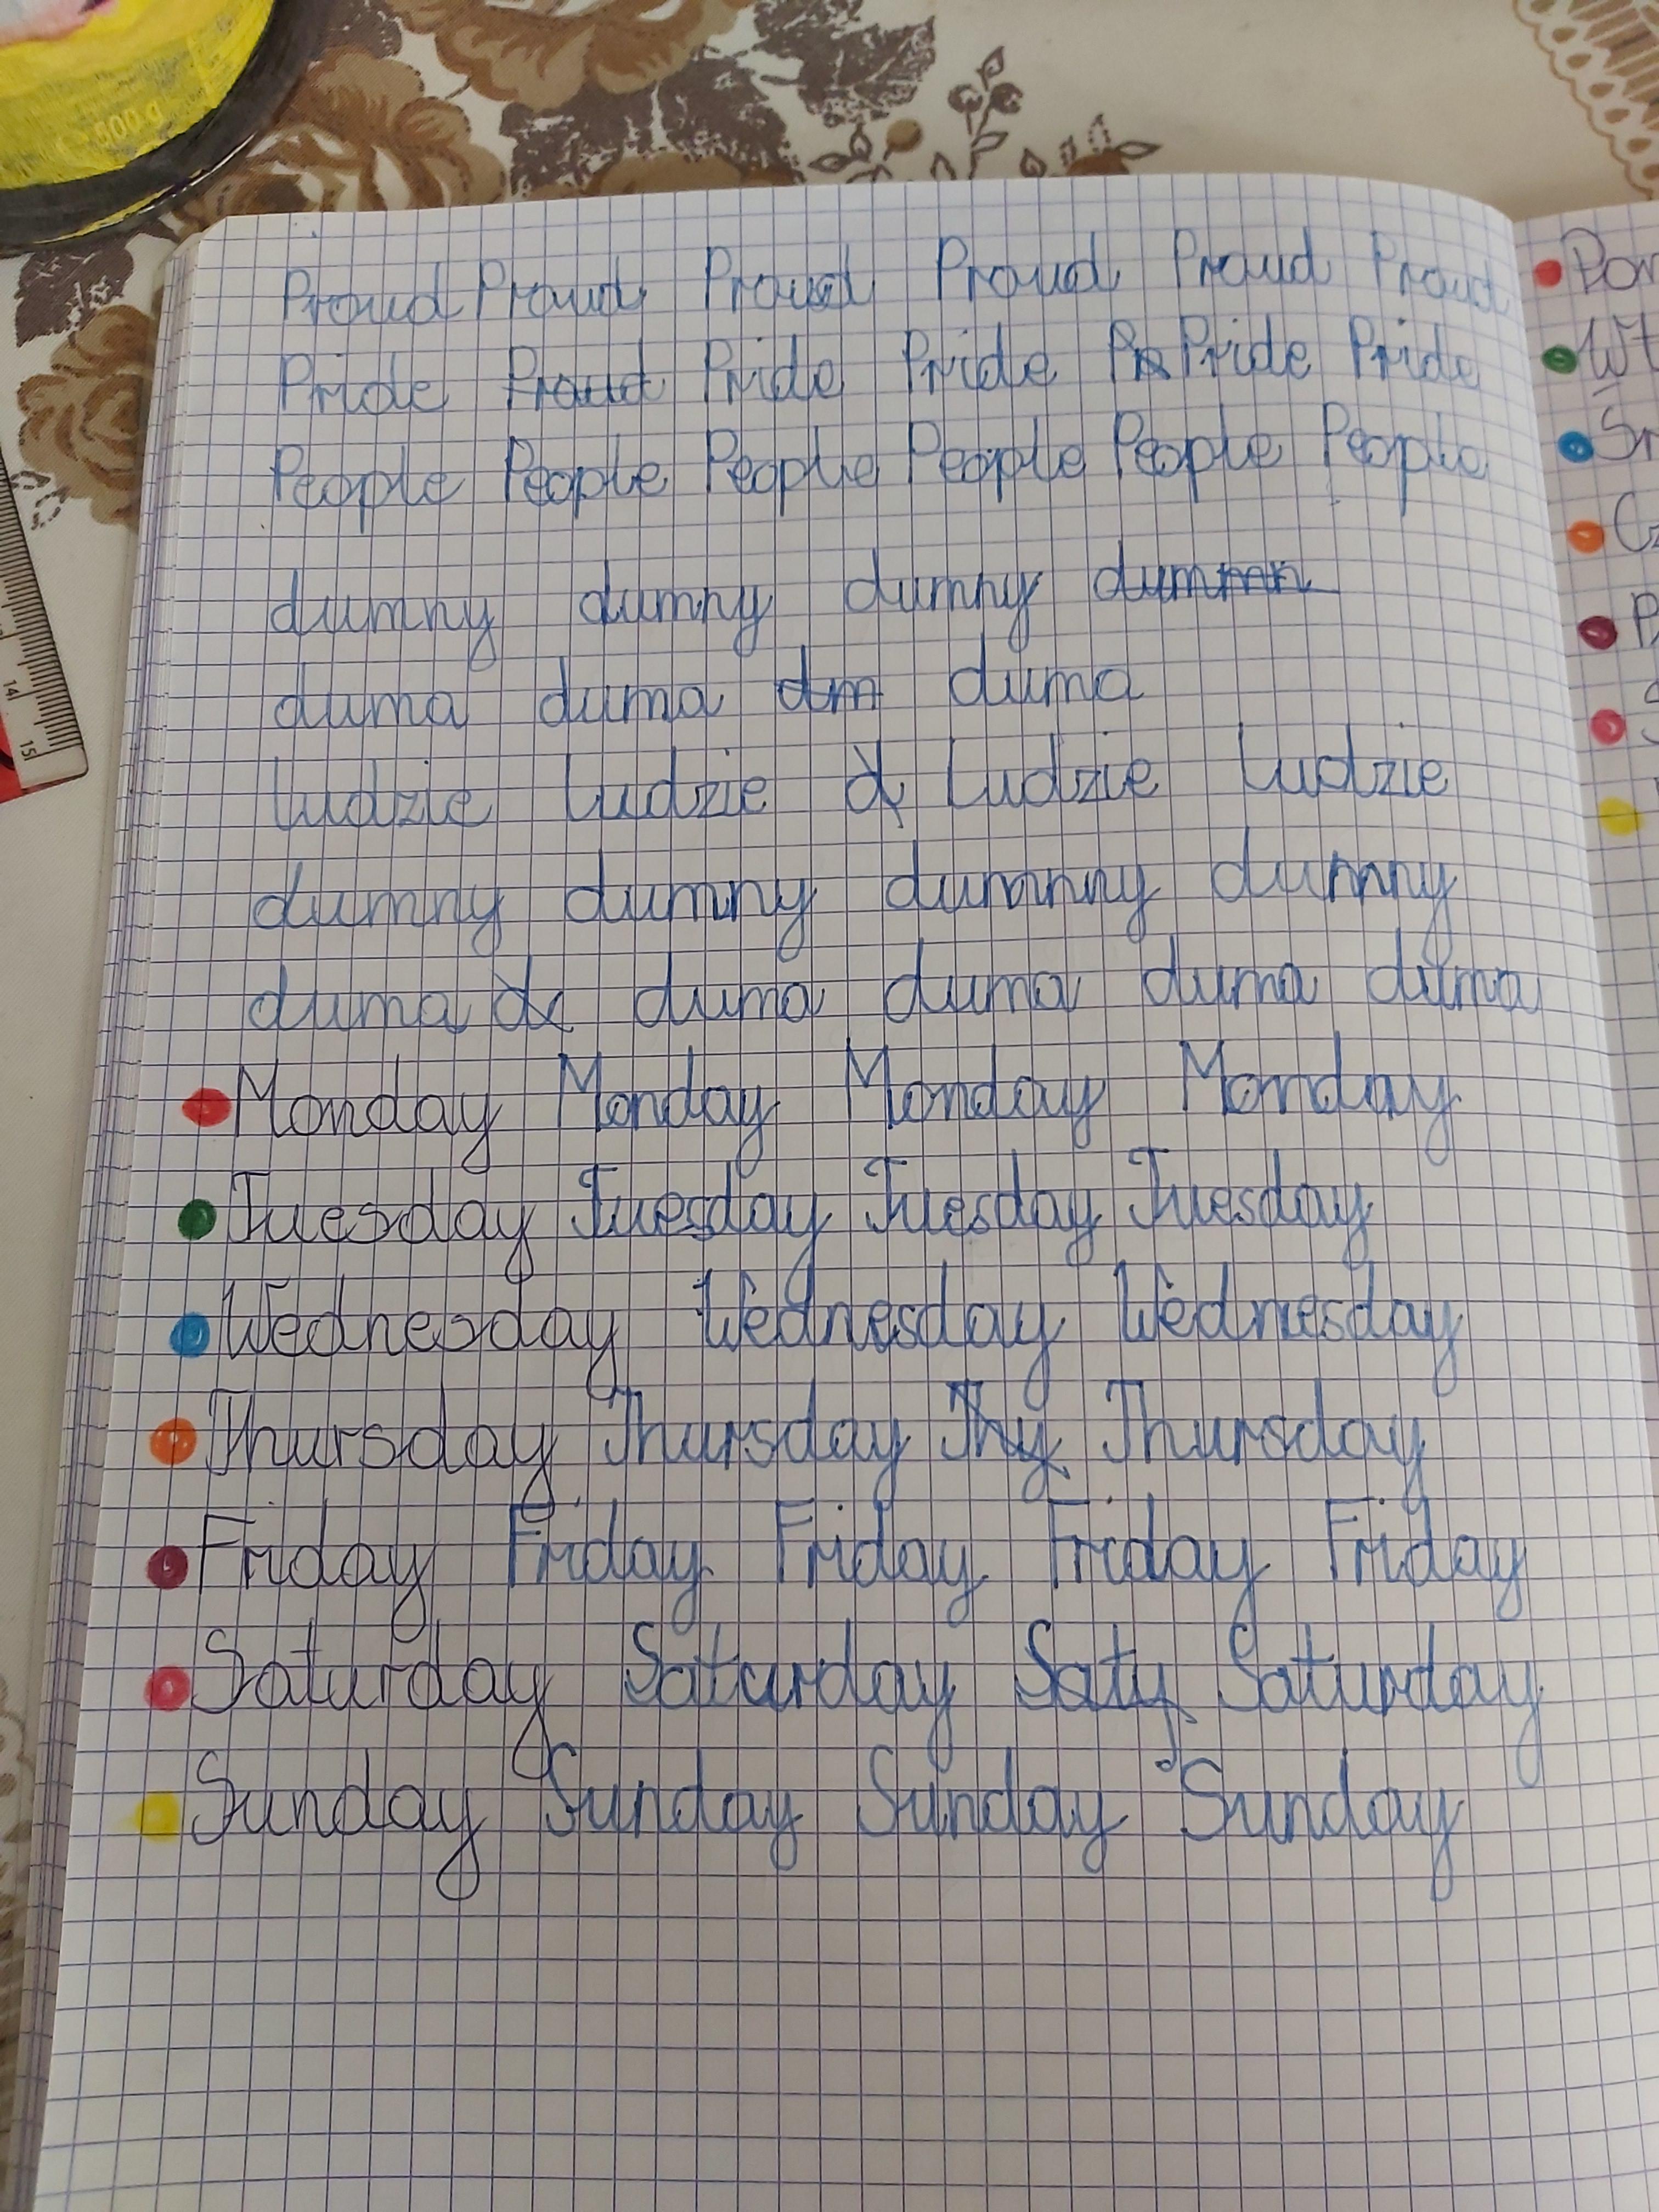 500 g
Proud Proud Proud Proud Proud Proud
Pride Proud Pride Pride Pr Pride Pride
People People People People People People
dumny dumny dumny dum
duma duma dm duma
ludzie ludzie d ludzie ludzie
dumny dumny dumnny dumny
duma d duma duma duma duma
Monday Monday Monday Monday
Tuesday Tuesday Tuesday Tuesday
Wednesday Wednesday Wednesday
Thursday Thursday Thy Thursday
Friday Friday Friday Friday Friday
Saturday Saturday Saty Saturday
Sunday Sunday Sunday Sunday
14
15